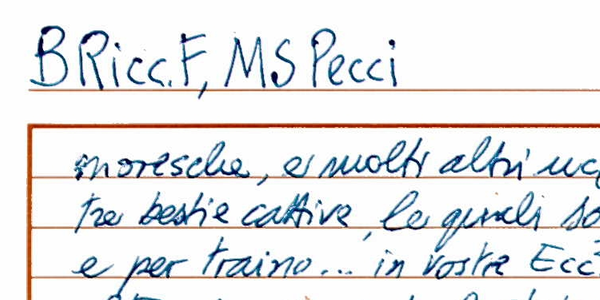 B Ricc. F, MS Pecci
moresche, e molti altri
tre bestie cattive, le quali so
e per traino... in vostre Ecc